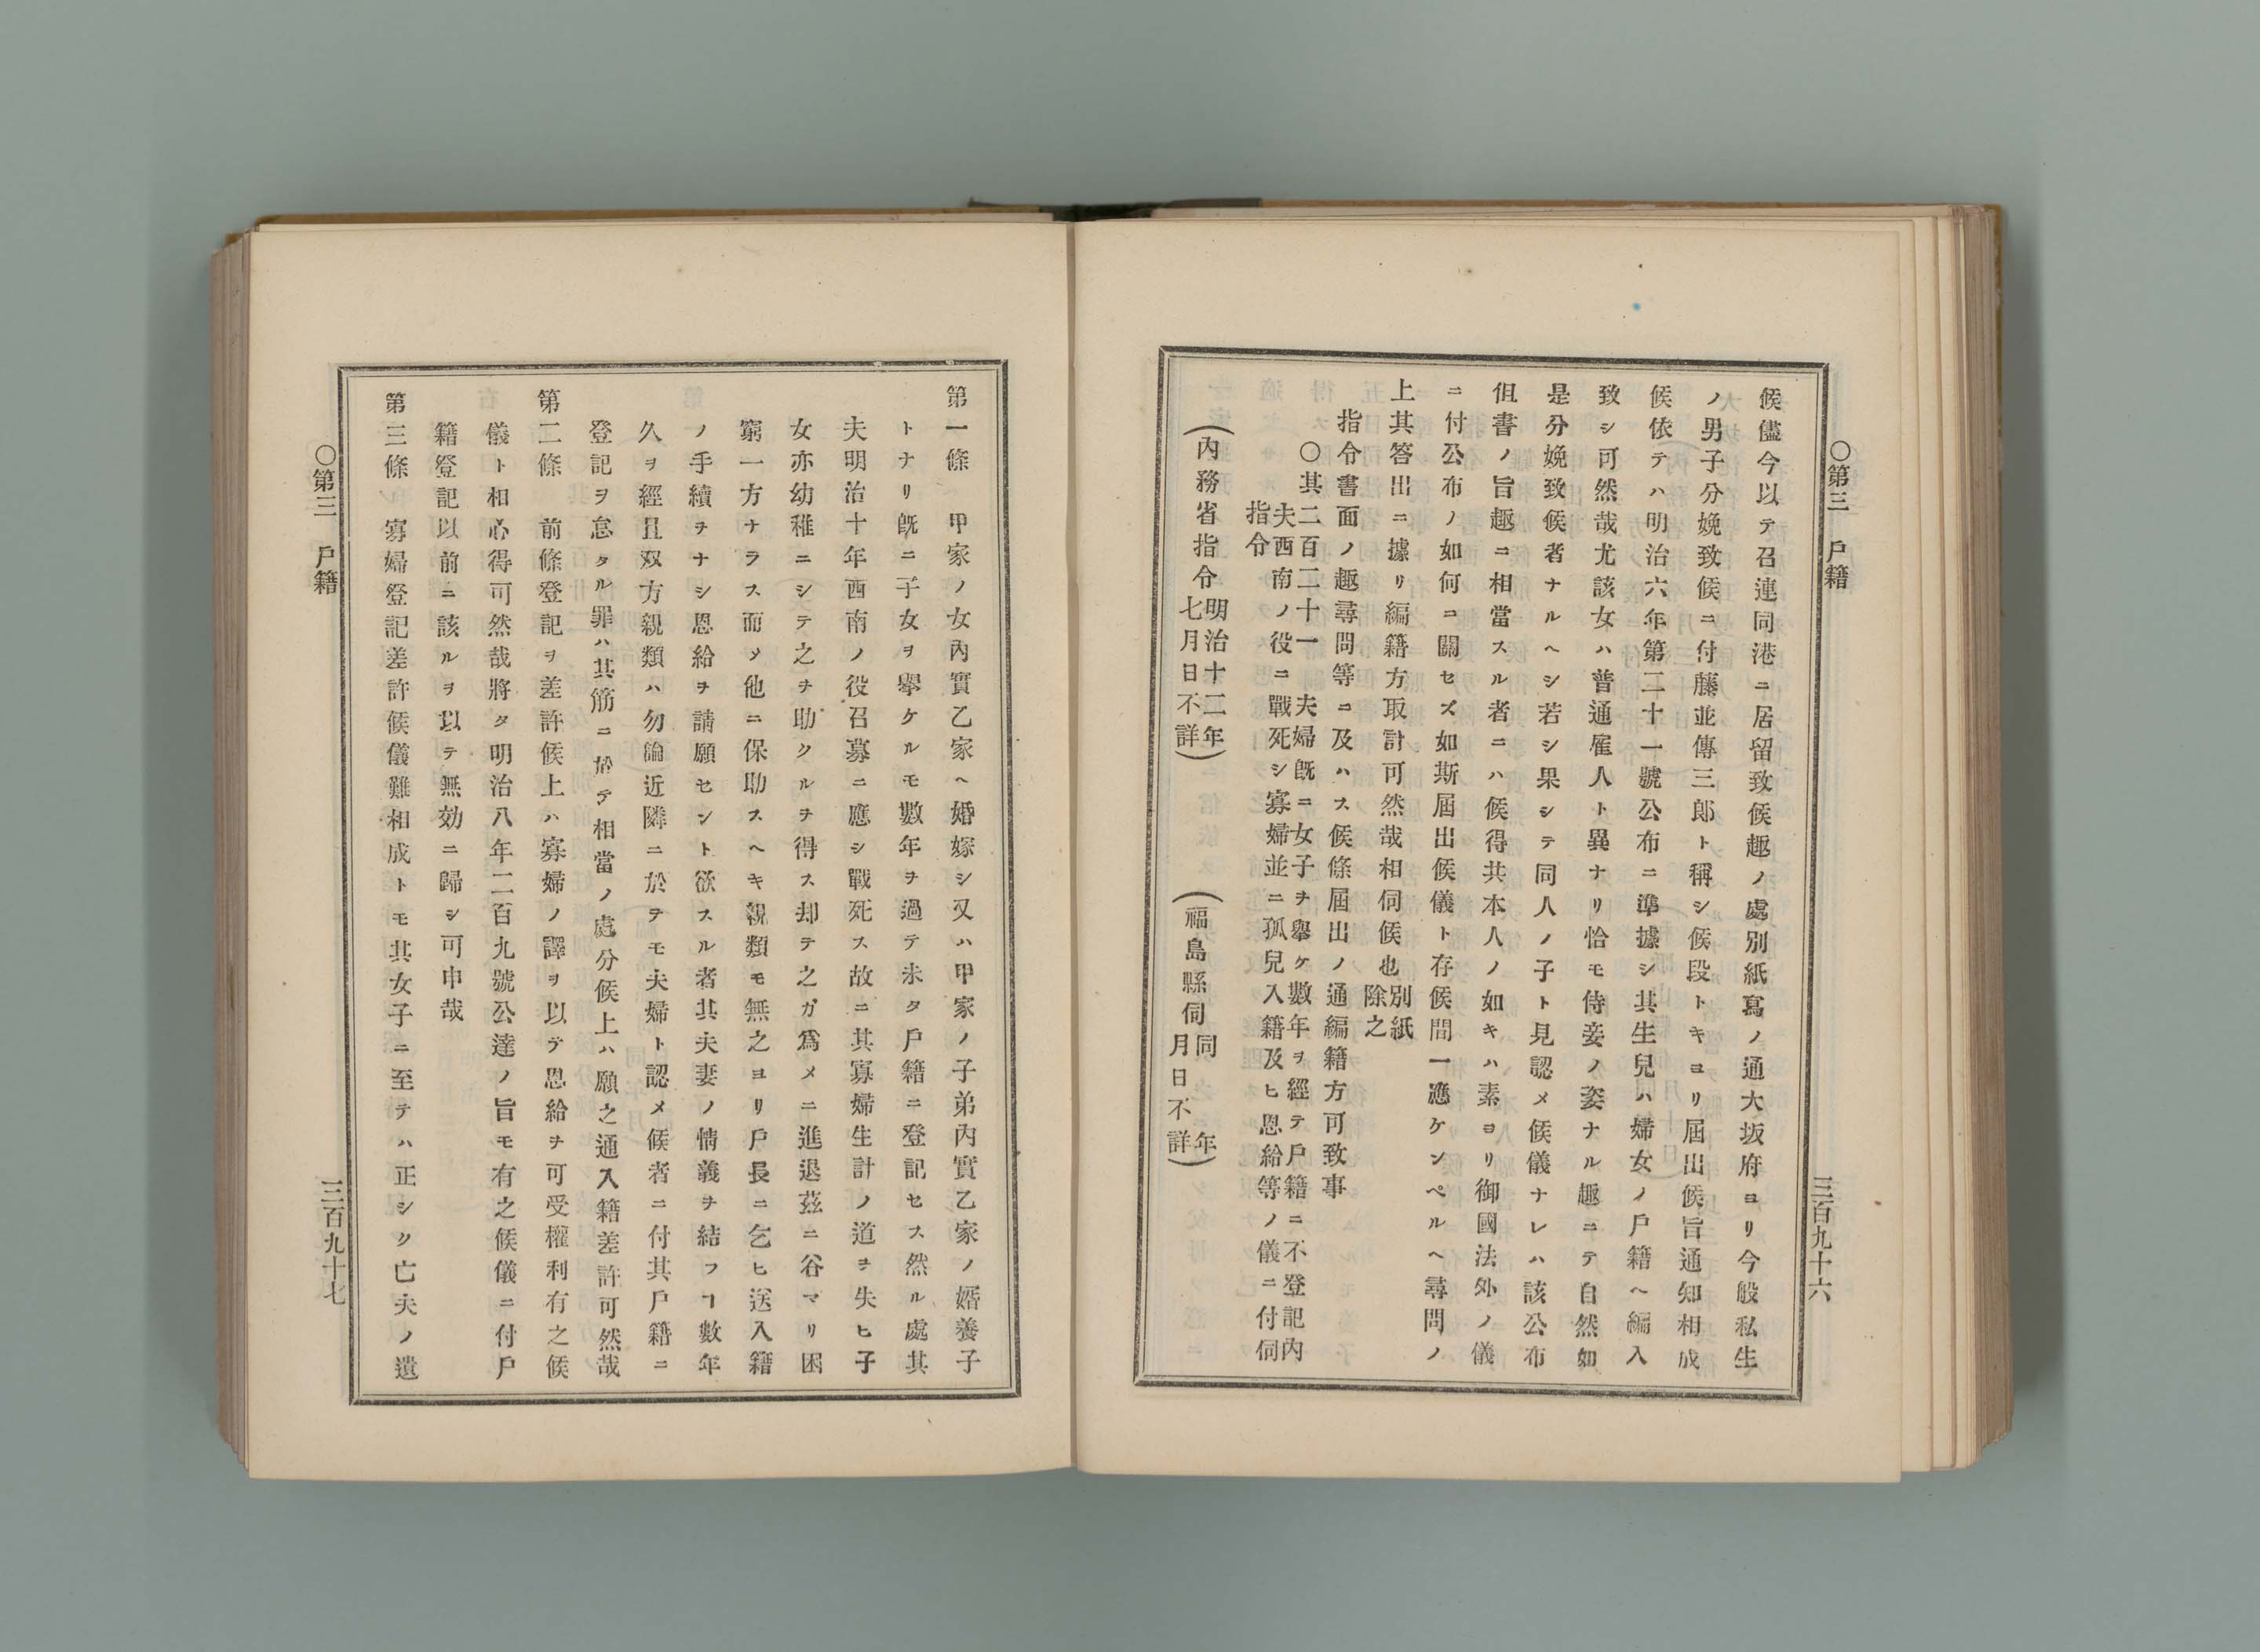 ○第三　戶籍
三百九十六
候儘今以テ召連同港ニ居留致候趣ノ處別紙寫ノ通大坂府ヨリ今般私生
ノ男子分娩致候ニ付藤並傳三郎ト稱シ候段トキヨリ屆出候旨通知相成
候依テハ明治六年第二十一號公布ニ準據シ其生兒ハ婦女ノ戶籍ヘ編入
致シ可然哉尤該女ハ普通雇人ト異ナリ恰モ侍妾ノ姿ナル趣ニテ自然如
是分娩致候者ナルヘシ若シ果シテ同人ノ子ト見認メ候儀ナレハ該公布
但書ノ旨趣ニ相當スル者ニハ候得共本人ノ如キハ素ヨリ御國法外ノ儀
ニ付公布ノ如何ニ關セズ如斯屆出候儀ト存候間一應ケンペルヘ尋問ノ
上其答出ニ據リ編籍方取計可然哉相伺候也別紙除之
指令書面ノ趣尋問等ニ及ハス候條屆出ノ通編籍方可致事
○其二百二十一　夫婦既ニ女子ヲ擧ケ數年ヲ經テ戶籍ニ不登記內
夫西南ノ役ニ戰死シ寡婦並ニ孤兒入籍及ヒ恩給等ノ儀ニ付伺
指令
（內務省指令明治十二年七月日不詳）　（福島縣伺同年月日不詳）
第一條　甲家ノ女內實乙家ヘ婚嫁シ又ハ甲家ノ子弟內實乙家ノ婿養子
トナリ既ニ子女ヲ擧ケルモ數年ヲ過テ未タ戶籍ニ登記セス然ル處其
夫明治十年西南ノ役召募ニ應シ戰死ス故ニ其寡婦生計ノ道ヲ失ヒ子
女亦幼稚ニシテ之ヲ助クルヲ得ス却テ之ガ爲メニ進退茲ニ谷マリ困
窮一方ナラス而メ他ニ保助スヘキ親類モ無之ヨリ戶長ニ乞ヒ送入籍
ノ手續ヲナシ恩給ヲ請願セント欲スル者其夫妻ノ情義ヲ結フヿ數年
久ヲ經且双方親類ハ勿論近隣ニ於テモ夫婦ト認メ候者ニ付其戶籍ニ
登記ヲ怠タル罪ハ其筋ニ於テ相當ノ處分候上ハ願之通入籍差許可然哉
第二條　前條登記ヲ差許候上ハ寡婦ノ譯ヲ以テ恩給ヲ可受權利有之候
儀ト相心得可然哉將タ明治八年二百九號公達ノ旨モ有之候儀ニ付戶
籍登記以前ニ該ルヲ以テ無効ニ歸シ可申哉
第三條　寡婦登記差許候儀難相成トモ其女子ニ至テハ正シク亡夫ノ遺
○第三　戶籍
三百九十七